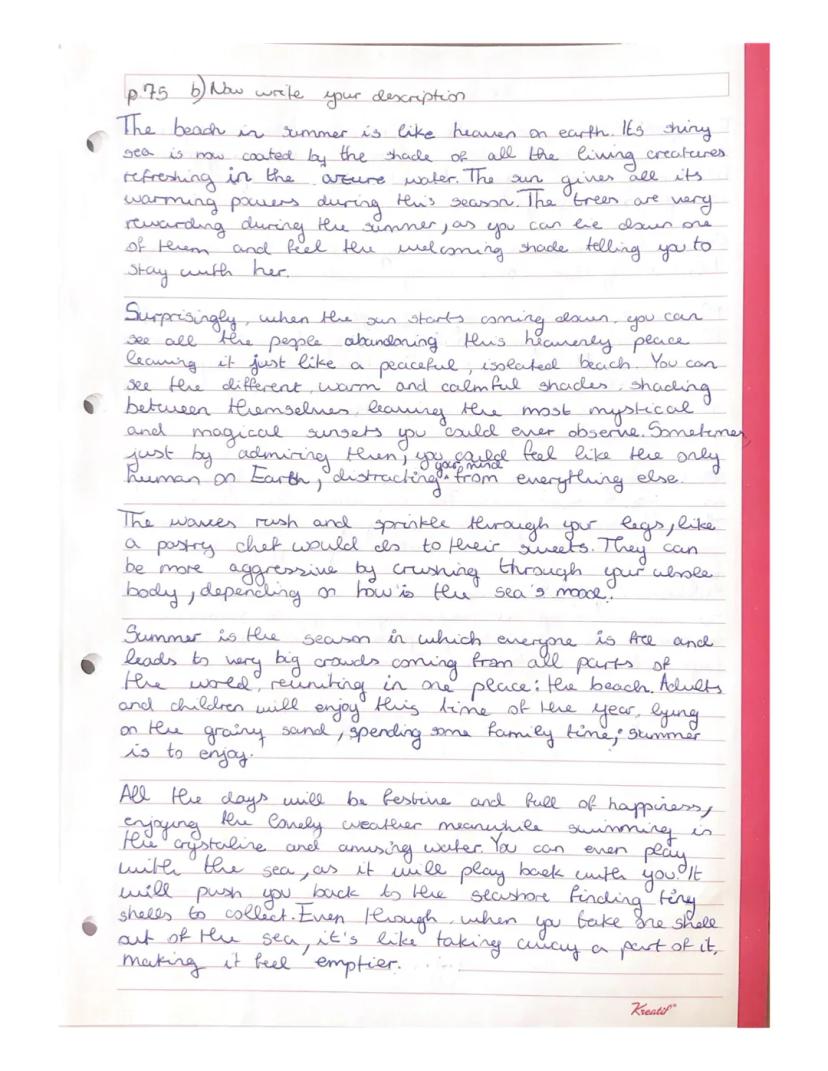 p.75 b) Now write your description
The beach in summer is like heaven on earth. It's shiny
sea is now coated by the shade of all the living creatures
refreshing in the azure water. The sun gives all its
warming powers during this season. The trees are very
rewarding during the summer, as you can lie down one
of them and feel the welcoming shade telling you to
stay with her.
Surprisingly, when the sun starts coming down, you can
see all the people abandoning this heavenly peace
leaving it just like a peaceful, isolated beach. You can
see the different, warm and calmful shades, shading
between themselves, leaving the most mystical
and magical sunsets you could ever observe. Sometimes,
just by admiring them, you could feel like the only
human on Earth, distracting your mind from everything else.
The waves rush and sprinkle through your legs, like
a pastry chef would do to their sweets. They can
be more aggressive by crushing through your whole
body, depending on how is the sea's mood.
Summer is the season in which everyone is free and
leads to very big crowds coming from all parts of
the world, reuniting in one place: the beach. Adults
and children will enjoy this time of the year, lying
on the grainy sand, spending some family time; summer
is to enjoy.
All the days will be festive and full of happiness,
enjoying the lovely weather meanwhile swimming in
the crystaline and amusing water. You can even play
with the sea, as it will play back with you. It
will push you back to the seashore finding tiny
shells to collect. Even though, when you take one shell
out of the sea, it's like taking away a part of it,
making it feel emptier.
Kreatif